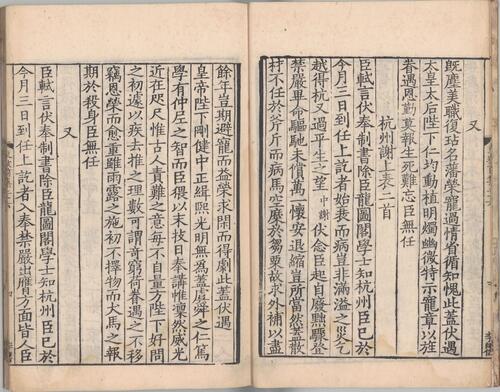 又
既塵美職復玷名藩榮寵過情省循知愧此蓋伏遇
太皇太后陛下仁均動植明燭幽微特示寵章以旌
眷遇恩勤莫報生死難忘臣無任
杭州謝上表二首
臣軾言伏奉制書除臣龍圖閣學士知杭州臣已於
今月三日到任上訖者始衰而病豈非滿溢之災乞
越得杭又過平生之望中謝伏念臣起自廢黜驟登
禁嚴畢命驅馳未償萬一懷安退縮豈所當然蓋散
材不任於斧斤而病馬空縻於芻粟故求外補以盡
餘年豈期避寵而益榮求閑而得劇此蓋伏遇
皇帝陛下剛健中正緝熙光明無為蓋虞舜之仁篤
學有仲尼之智而臣猥以末技日奉講帷凜然威光
近在咫尺惟古人責難之意每不自量方陛下好問
之初遽以疾去推之理數可謂奇窮荷眷遇之不移
竊恩榮而愈重雖雨露之施初不擇物而犬馬之報
期於殺身臣無任
又
臣軾言伏奉制書除臣龍圖閣學士知杭州臣已於
今月三日到任上訖者入奉禁嚴出膺方面皆人臣